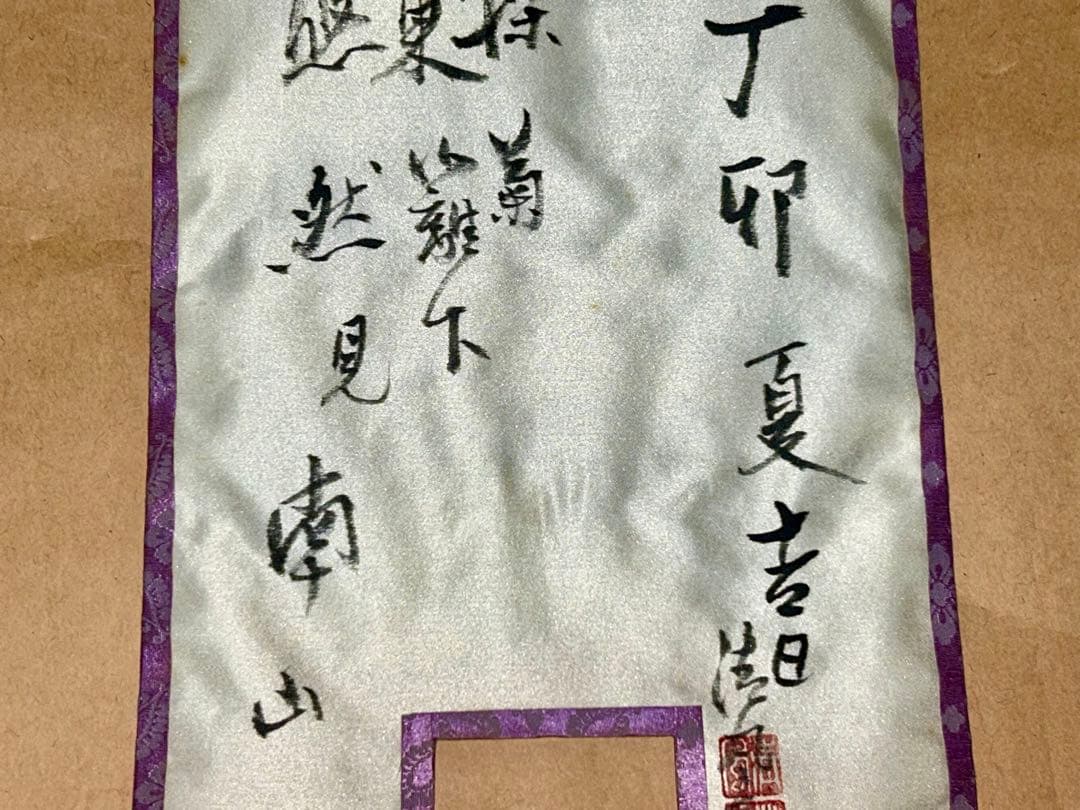 丁卯夏吉日
清
採菊
東籬下
悠然見南山